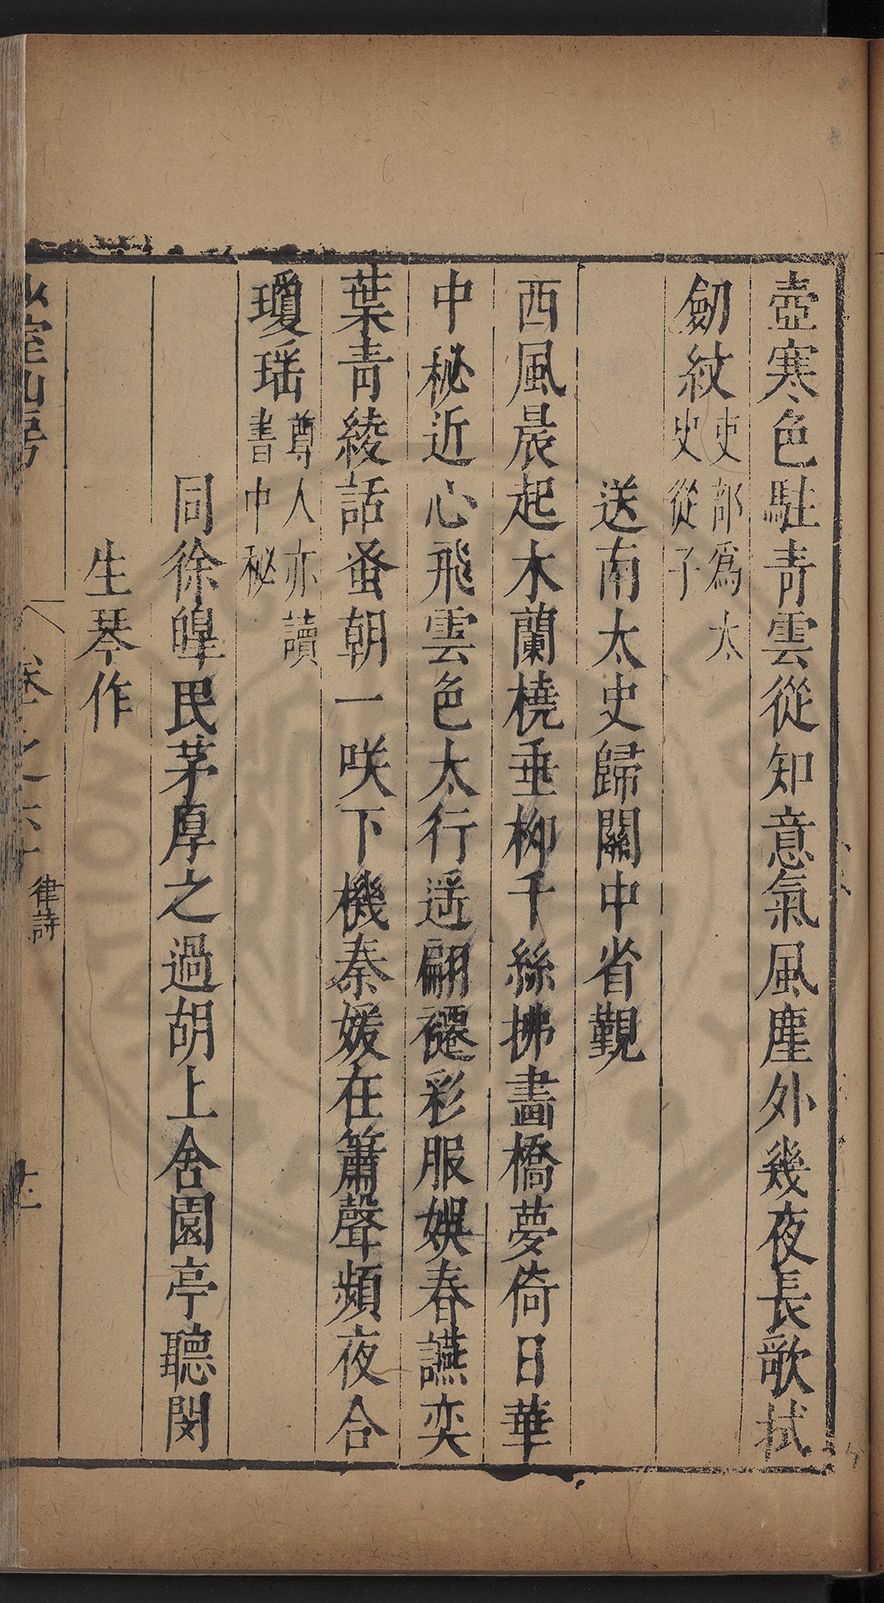 壺寒色駐青雲從知意氣風塵外幾夜長歌拭
劒紋吏部爲太史從子
送南太史歸關中省覲
西風晨起木蘭橈垂柳千絲拂畫橋夢倚日華
中秘近心飛雲色太行遥翩褼彩服娛春讌奕
葉青綾話蚤朝一咲下機秦媛在簫聲頻夜合
瓊瑶尊人亦讀書中秘
同徐皥民茅厚之過胡上舍園亭聽閔
生琴作
室山房
卷之六十
律詩
十二